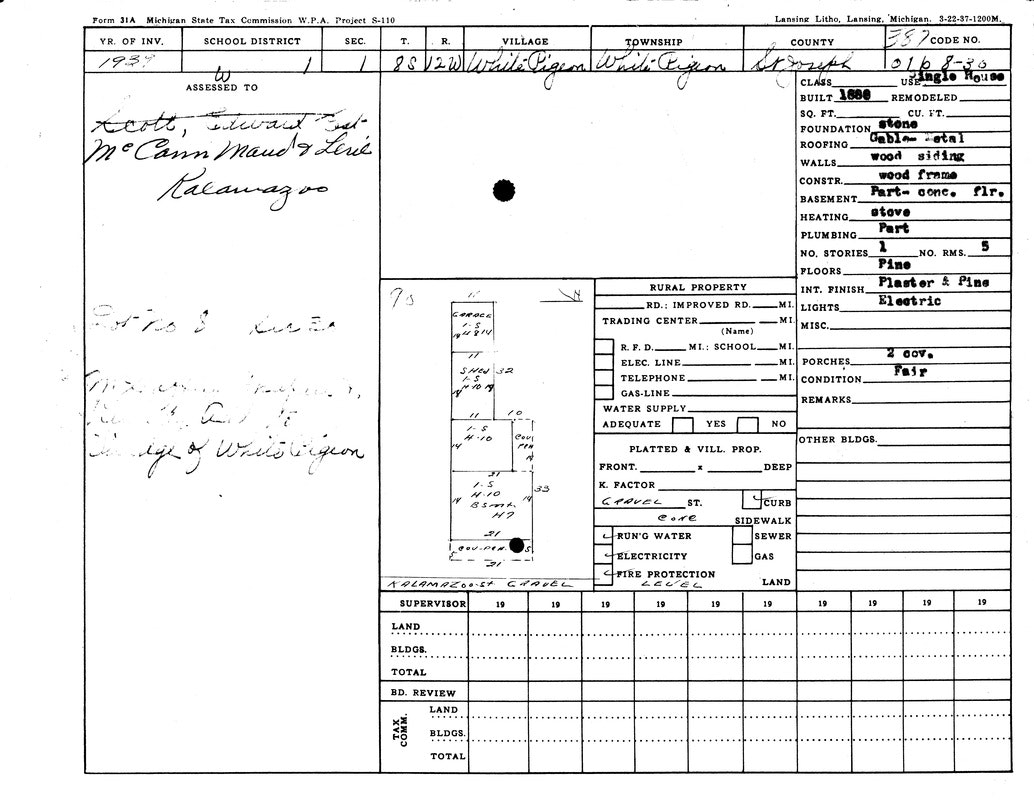 Form 31A Michigan State Tax Commission W.P.A. Project S-110 Lansing Litho, Lansing, Michigan. 3-22-37-1200M.
YR. OF INV. SCHOOL DISTRICT SEC. T. R. VILLAGE TOWNSHIP COUNTY 387 CODE NO.
1938 W 1 1 8S 12W White Pigeon White Pigeon St Joseph 016 8-30
ASSESSED TO
Scott, Edward Est
McCann Maud &
Kalamazoo
Lot No 8
of White Pigeon
CLASS USE Single House
BUILT 1880 REMODELED
SQ. FT. CU. FT.
FOUNDATION stone
ROOFING Gable
WALLS wood siding
CONSTR. wood frame
BASEMENT Part- conc. flr.
HEATING stove
PLUMBING Part
NO. STORIES 1 NO. RMS. 5
FLOORS Pine
INT. FINISH Plaster & Pine
LIGHTS Electric
MISC.
PORCHES 2 cov.
CONDITION Fair
REMARKS
OTHER BLDGS.
N
11
GARAGE
1-S
11
SHED 32
1-S
H-10
11 10
1-S
H-10
14
21
1-S 33
14 H-10 14
BSMT.
H7
21
5 COV-PEN. 5
21
KALAMAZOO-St GRAVEL
RURAL PROPERTY
RD.; IMPROVED RD. MI.
TRADING CENTER MI.
(Name)
R. F. D. MI.; SCHOOL MI.
ELEC. LINE MI.
TELEPHONE MI.
GAS-LINE
WATER SUPPLY
ADEQUATE YES NO
PLATTED & VILL. PROP.
FRONT. x DEEP
K. FACTOR
GRAVEL ST. CURB
CONC SIDEWALK
RUN'G WATER SEWER
ELECTRICITY GAS
FIRE PROTECTION
LEVEL LAND
SUPERVISOR 19 19 19 19 19 19 19 19 19 19
LAND
BLDGS.
TOTAL
BD. REVIEW
TAX COMM.
LAND
BLDGS.
TOTAL